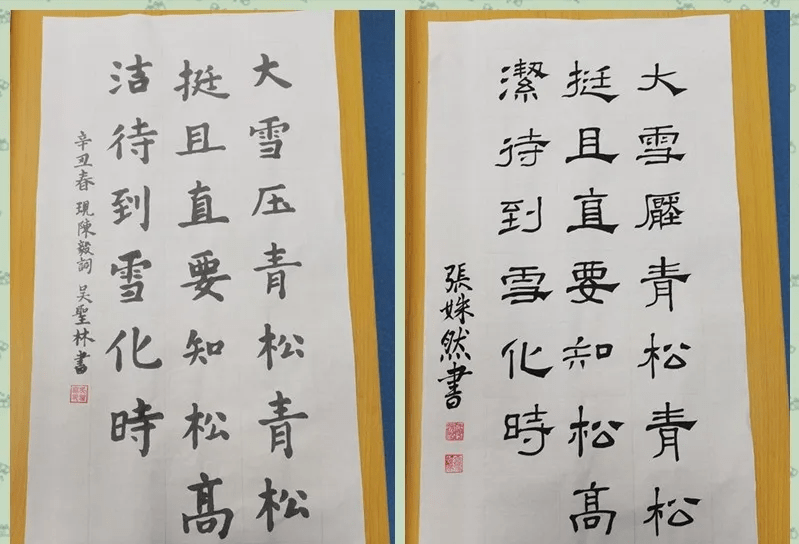 大雪压青松青松
挺且直要知松高
洁待到雪化時
辛丑春 現陳毅詞 吴聖林書
大雪壓青松青松
挺且直要知松高
潔待到雪化時
張姝然書